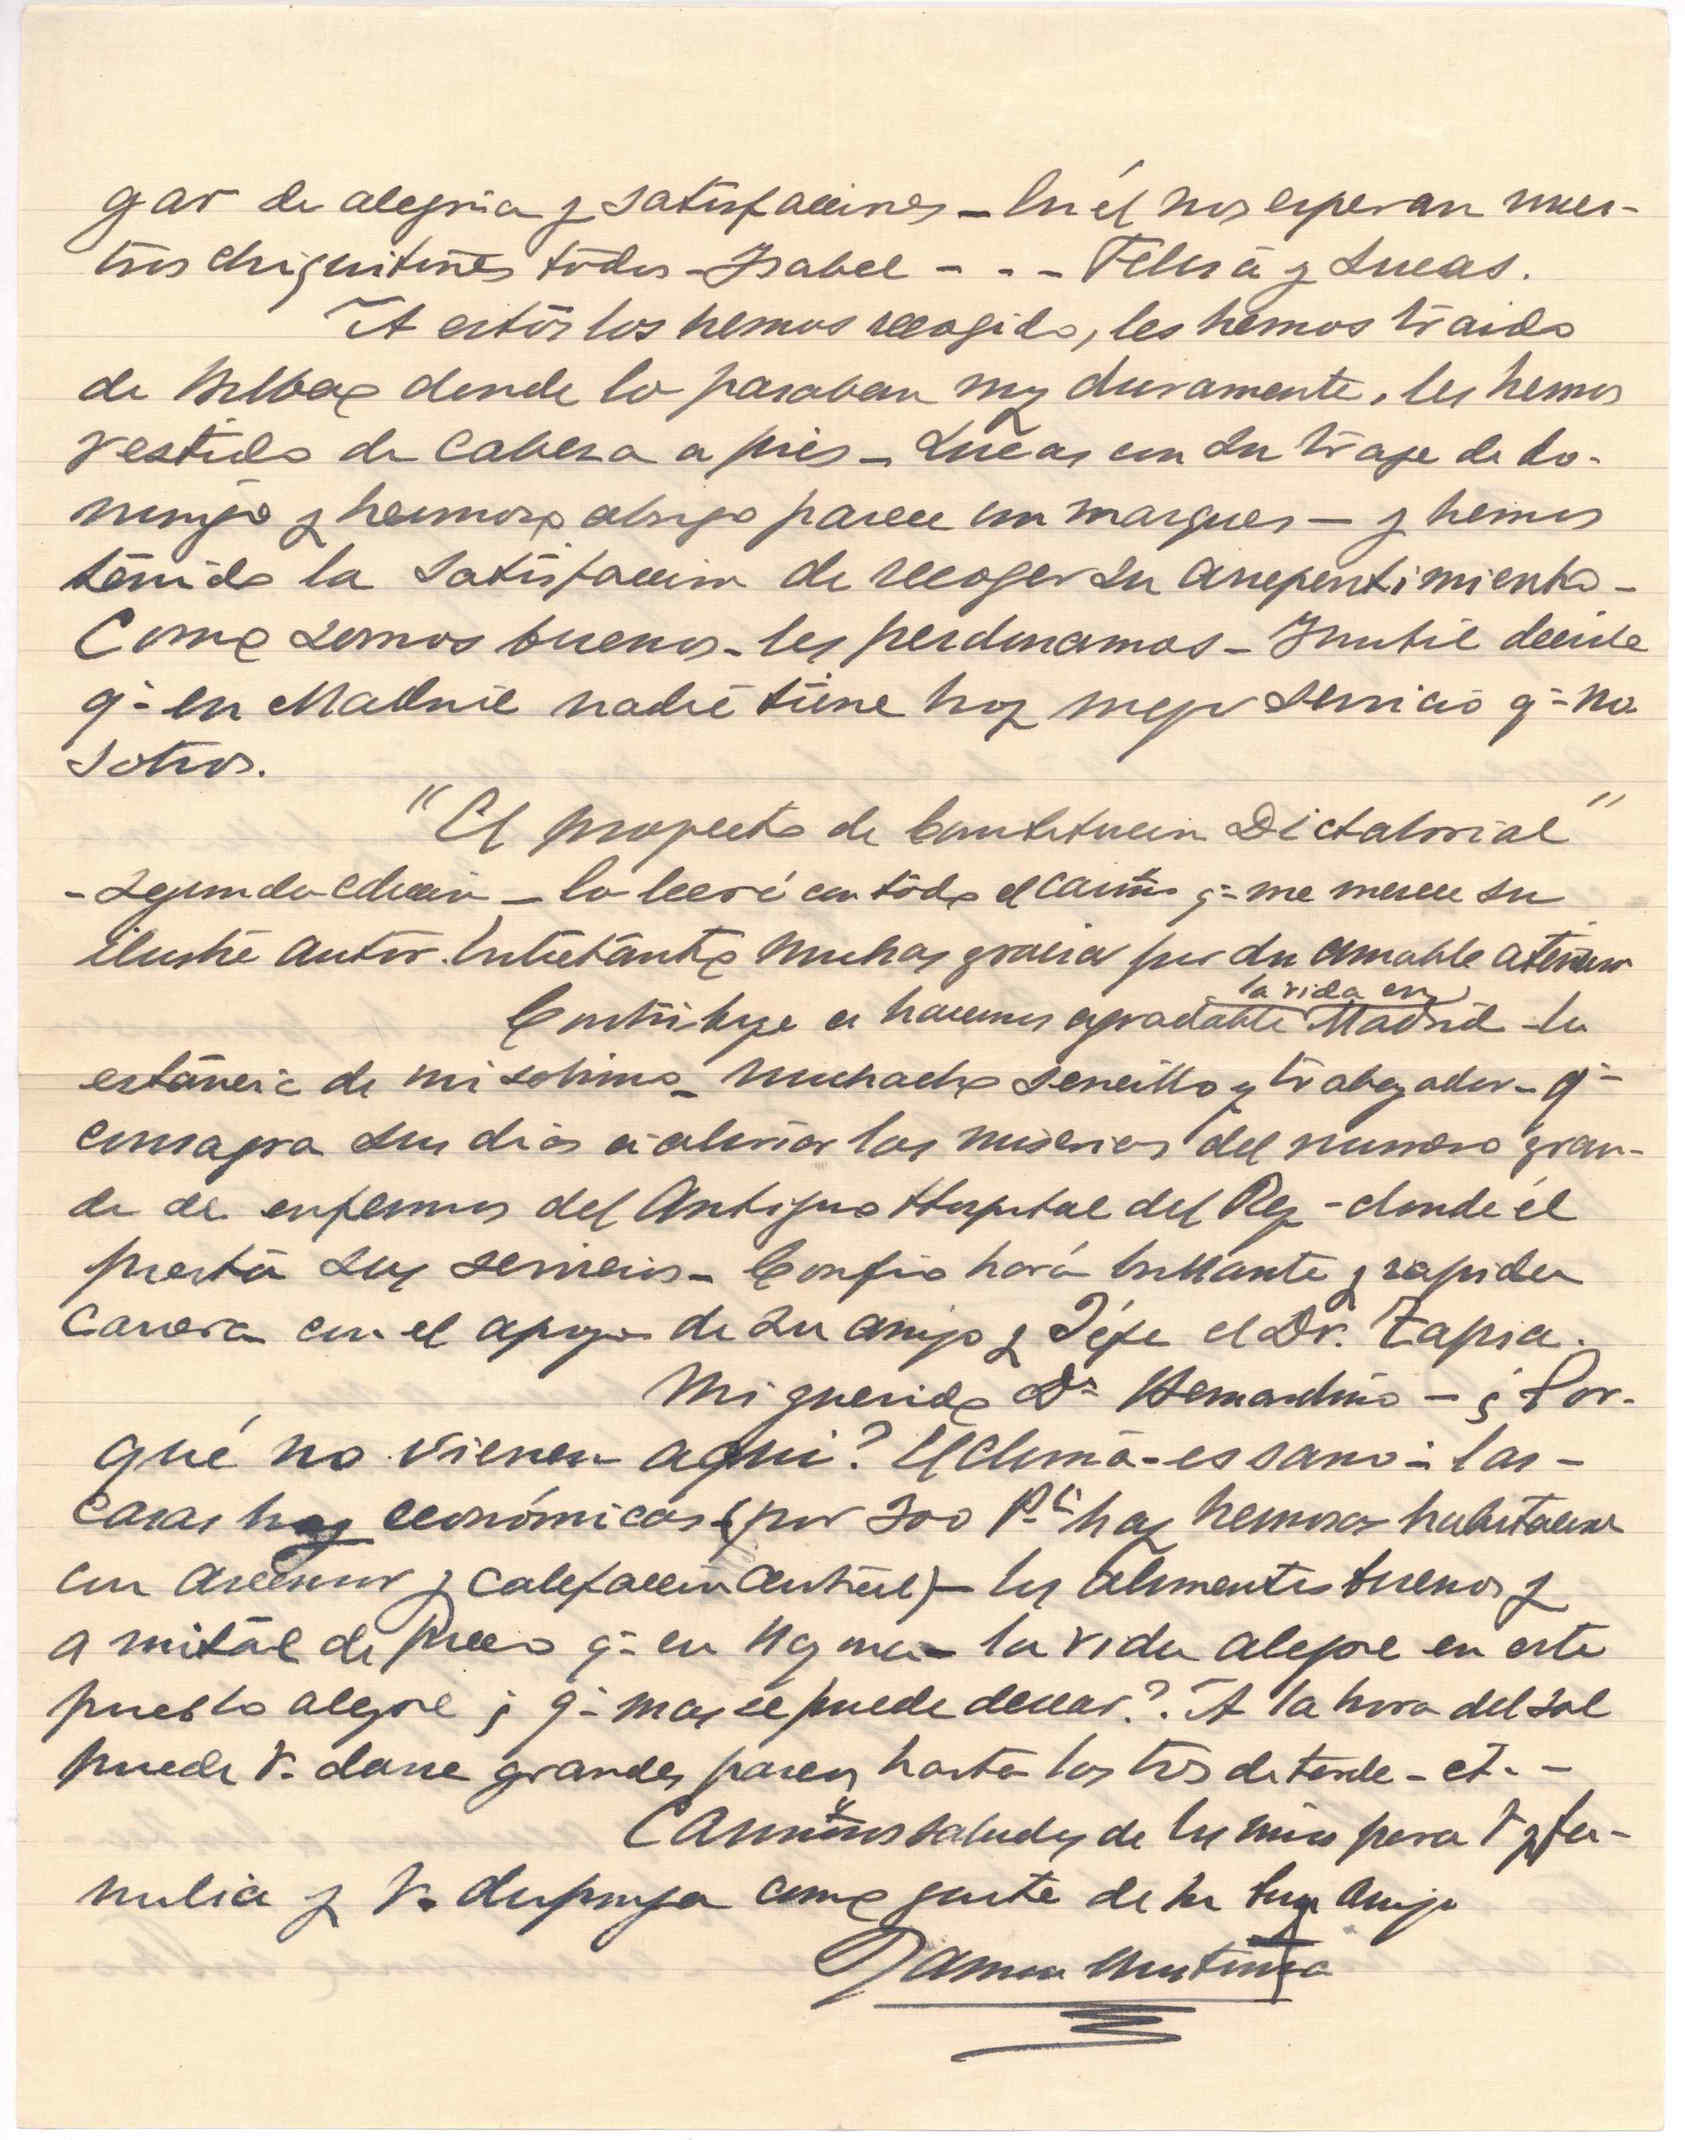 gar de alegria y satisfacciones - En él nos esperan nues-
tros chiquitines todos - Isabel - - - Felisa y Lucas.
A estos los hemos recogido, les hemos traido
de Bilbao donde lo pasaban muy duramente, les hemos
vestido de cabeza a pies - Lucas con su traje de do-
mingo y hermoso abrigo parece un marques - y hemos
tenido la satisfaccion de recoger su arrepentimiento -
Como somos buenos - les perdonamos - Inutil decirle
q- en Madrid nadie tiene hoy mejor servicio q- no
sotros.
"El proyecto de Constitucion Dictatorial"
- segunda edicion - lo leeré con todo el cariño q- me merece su
ilustre autor. Entretanto muchas gracias por su amable atencion
la vida en
Contribuye a hacernos agradable Madrid - la
estancia de mi sobrino - muchacho sencillo y trabajador - q-
consagra sus dias a aliviar las miserias del numero gran-
de de enfermos del Antiguo Hospital del Rey - donde él
presta sus servicios - Confio hará brillante y rapida
carrera con el apoyo de su amigo y Jéfe el Dr. Tapia.
Mi querido Dn Bernardino - ¿Por-
qué no vienen aqui? El clima - es sano - las -
casas hoy económicas (por 300 Pts hay hermosas habitacion
con ascensor y calefaccion central) - los alimentos buenos y
a mitad de precio q- en - la vida alegre en este
pueblo alegre ¿q- mas se puede desear?. A la hora del sol
puede V. darse grandes paseos hasta las tres de tarde - et. -
Cariñosos saludos de los mios para V y fa-
milia y V. disponga como guste de su buen amigo
Ramon